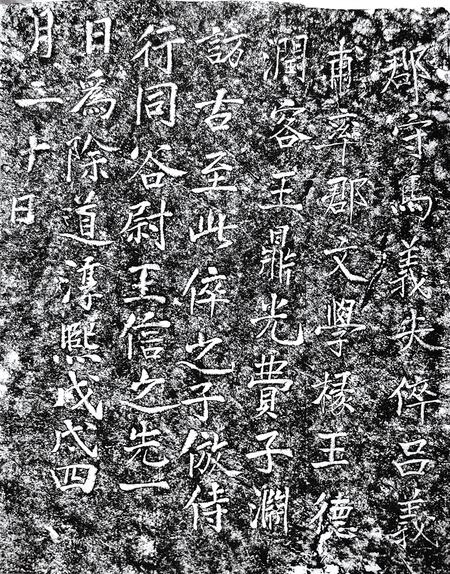 郡守馬義夫倅呂義
甫率郡文學掾王德
潤客王鼎光費子淵
訪古至此倅之子倣侍
行同谷尉王信之先一
日為除道淳熙戊戌四
月二十日